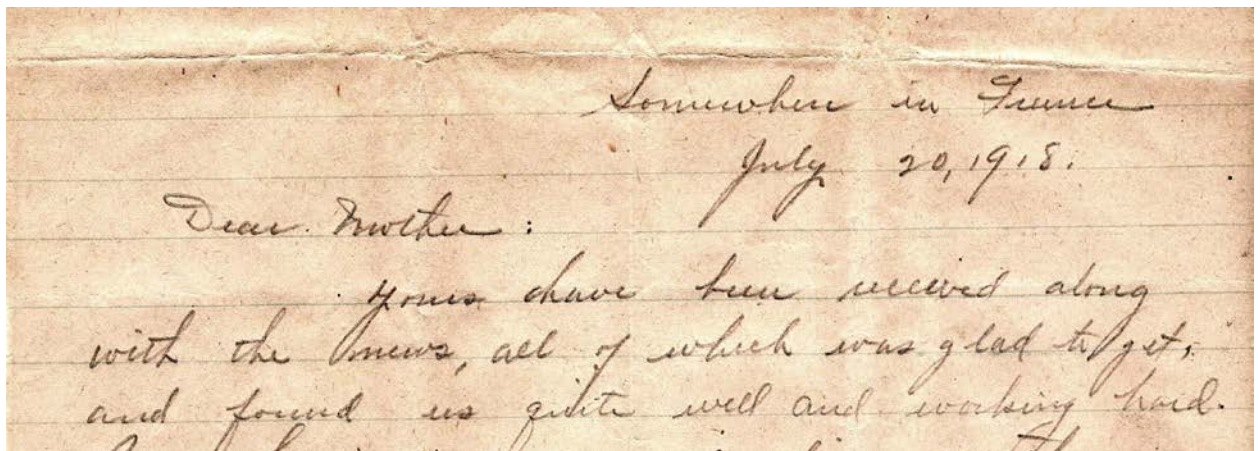 Somewhere in France
July 20, 1918.
Dear Mother:
Yours have been received along
with the news, all of which was glad to get,
and found us quite well and working hard.